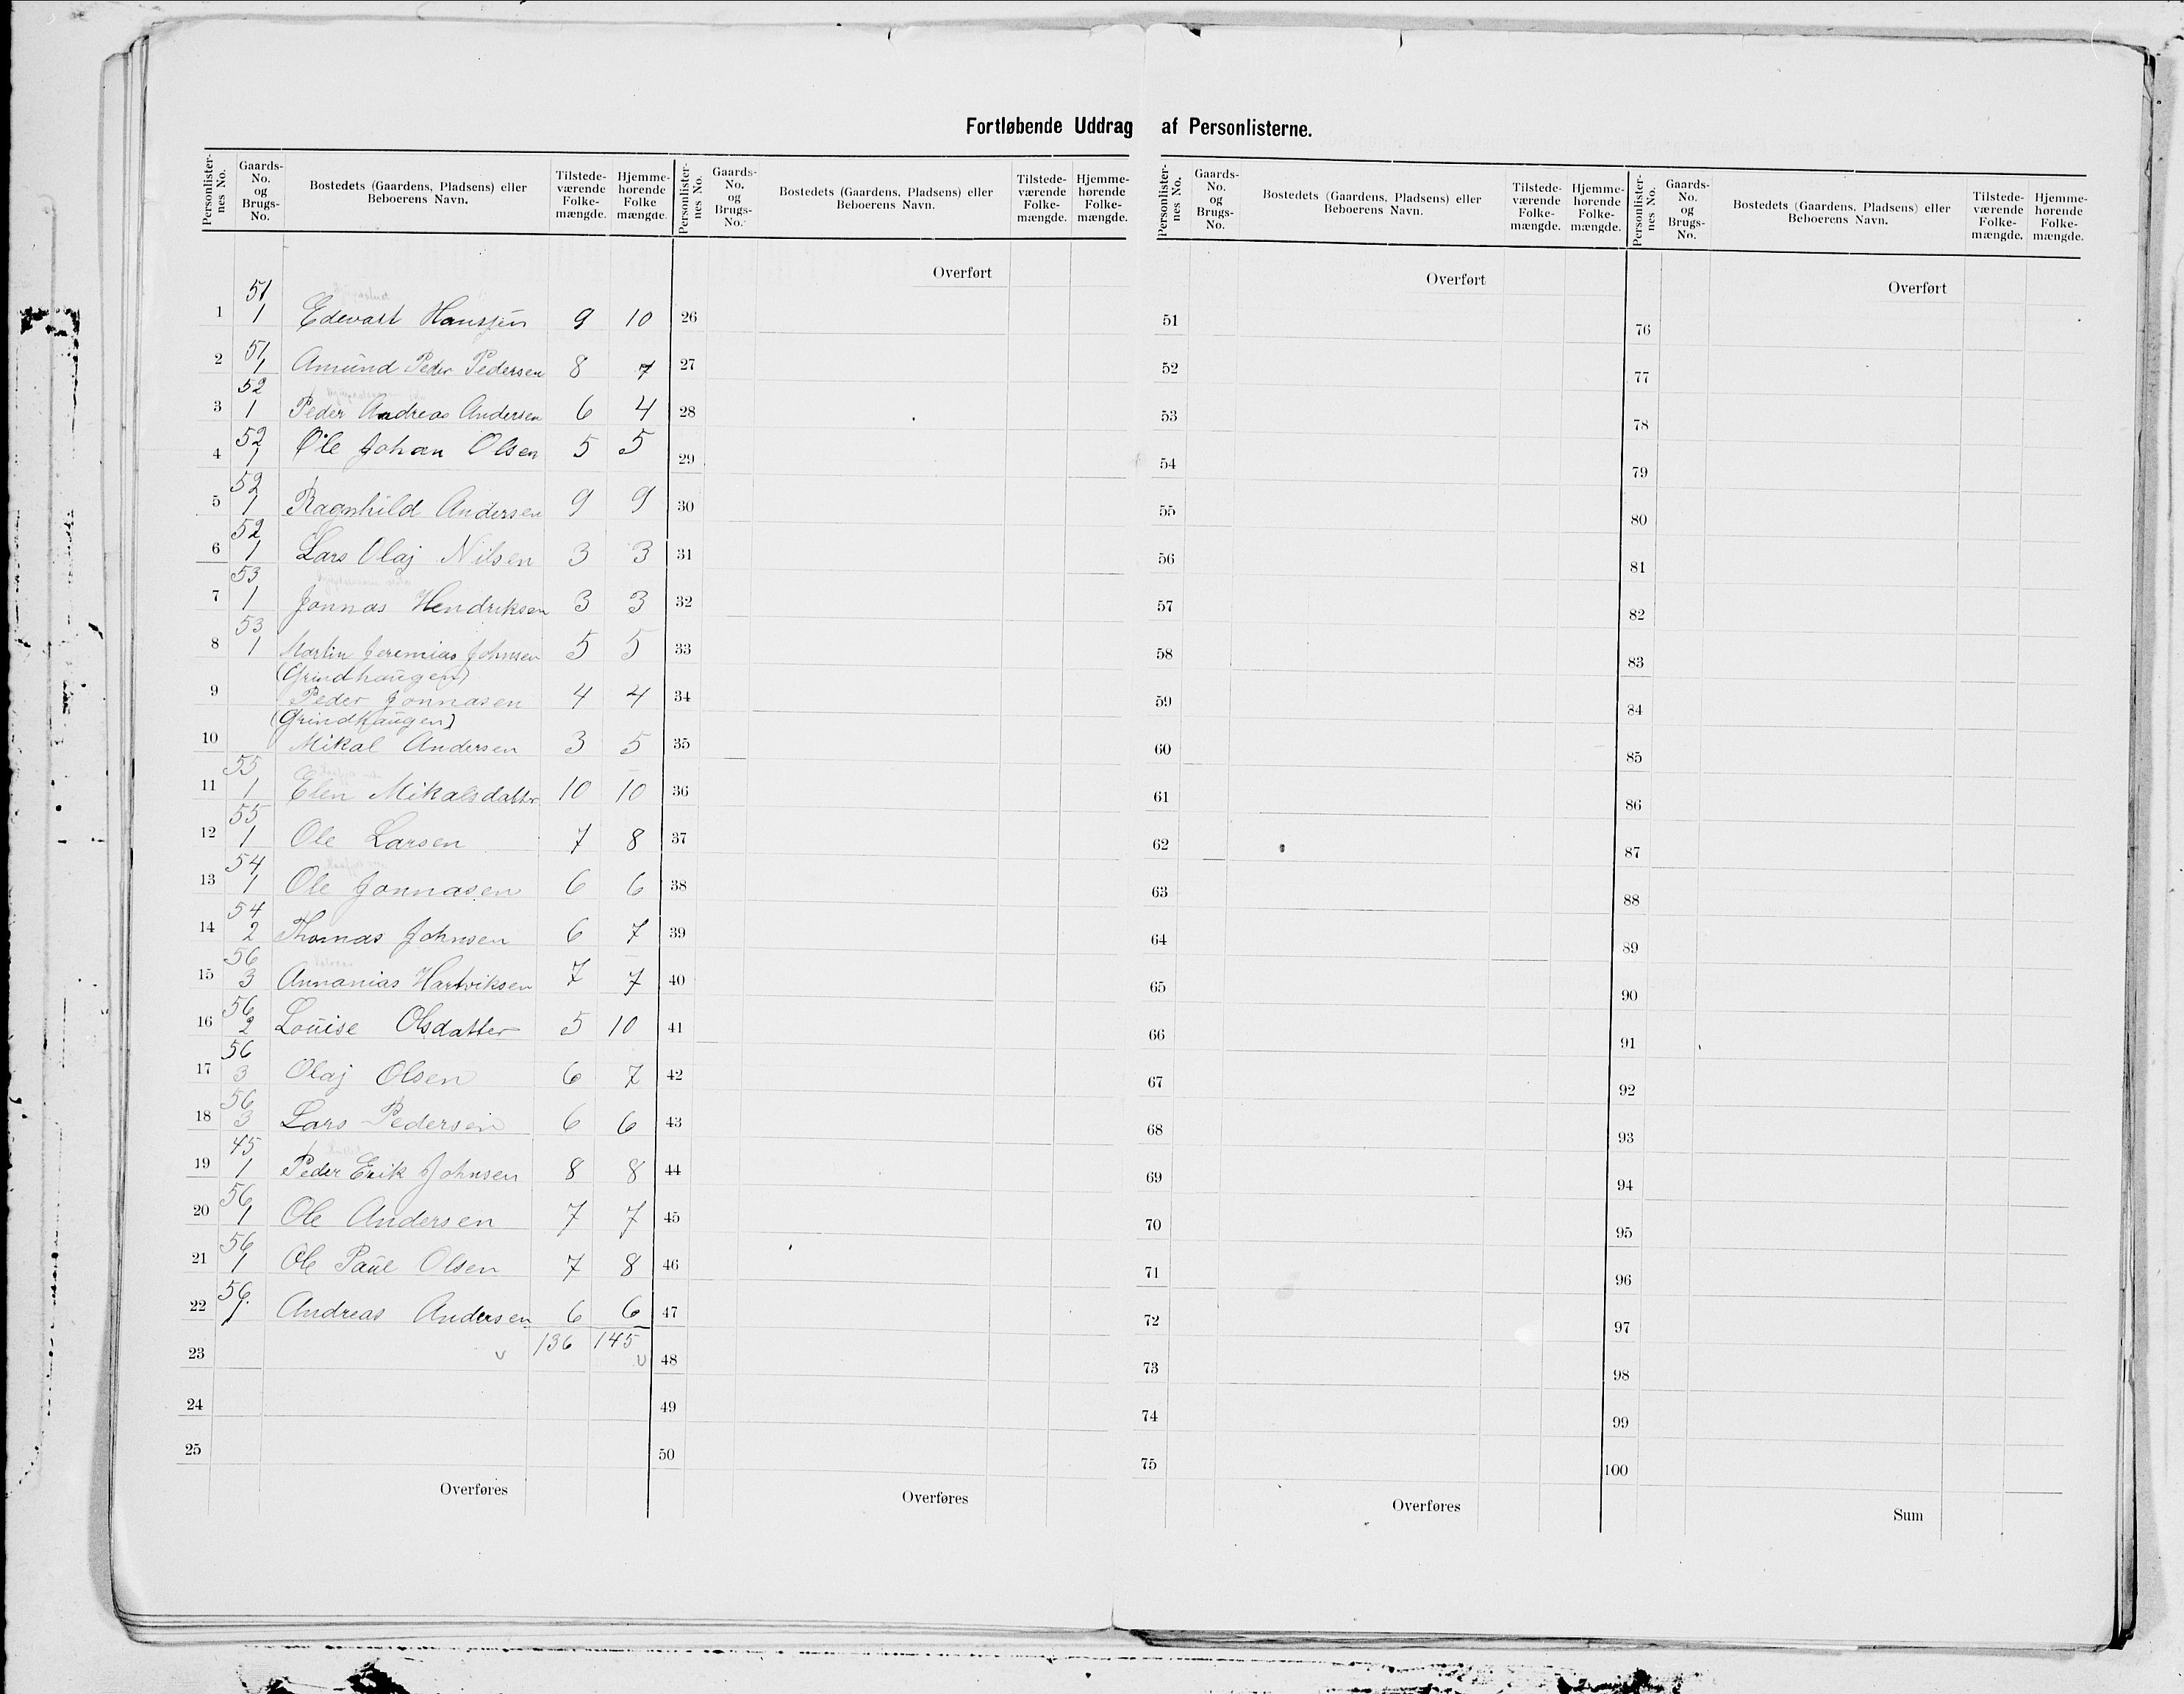 Fortløbende Uddrag af Personlisterne.
Personlister-nes No. Gaards-No. og Brugs-No. Bostedets (Gaardens, Pladsens) eller Beboerens Navn. Tilstede-værende Folke-mængde. Hjemme-hørende Folke mængde. Personlister-nes No. Gaards-No. og Brugs-No. Bostedets (Gaardens, Pladsens) eller Beboerens Navn. Tilstede-værende Folke-mængde. Hjemme-hørende Folke-mængde. Personlister-nes No. Gaards-No. og Brugs-No. Bostedets (Gaardens, Pladsens) eller Beboerens Navn. Tilstede-værende Folke-mængde. Hjemme-hørende Folke-mængde. Personlister-nes No. Gaards-No. og Brugs-No. Bostedets (Gaardens, Pladsens) eller Beboerens Navn. Tilstede-værende Folke-mængde. Hjemme-hørende Folke-mængde.
Overført Overført Overført
1 51/1 Edevart Hanssen 9 10 26 51 76
2 51/1 Amund Peder Pedersen 8 7 27 52 77
3 52/1 Peder Andreas Andersen 6 4 28 53 78
4 52/1 Ole Johan Olsen 5 5 29 54 79
5 52/1 Ragnhild Andersen 9 9 30 55 80
6 52/1 Lars Olaj Nilsen 3 3 31 56 81
7 53/1 Jonnas Hendriksen 3 3 32 57 82
8 53/1 Martin Jeremias Johnsen 5 5 33 58 83
(Grindhaugen)
9 Peder Jonnasen 4 4 34 59 84
(Grindhaugen)
10 Mikal Andersen 3 5 35 60 85
11 55/1 Elen Mikalsdatter 10 10 36 61 86
12 55/1 Ole Larsen 7 8 37 62 87
13 54/1 Ole Jonnasen 6 6 38 63 88
14 54/2 Thomas Johnsen 6 7 39 64 89
15 56/3 Annanias Hartviksen 7 7 40 65 90
16 56/2 Louise Olsdatter 5 10 41 66 91
17 56/3 Olaj Olsen 6 7 42 67 92
18 56/3 Lars Pedersen 6 6 43 68 93
19 45/1 Peder Erik Johnsen 8 8 44 69 94
20 56/1 Ole Andersen 7 7 45 70 95
21 56/1 Ole Paul Olsen 7 8 46 71 96
22 56/1 Andreas Andersen 6 6 47 72 97
136 145
23 48 73 98
24 49 74 99
25 50 75 100
Overføres Overføres Overføres Sum